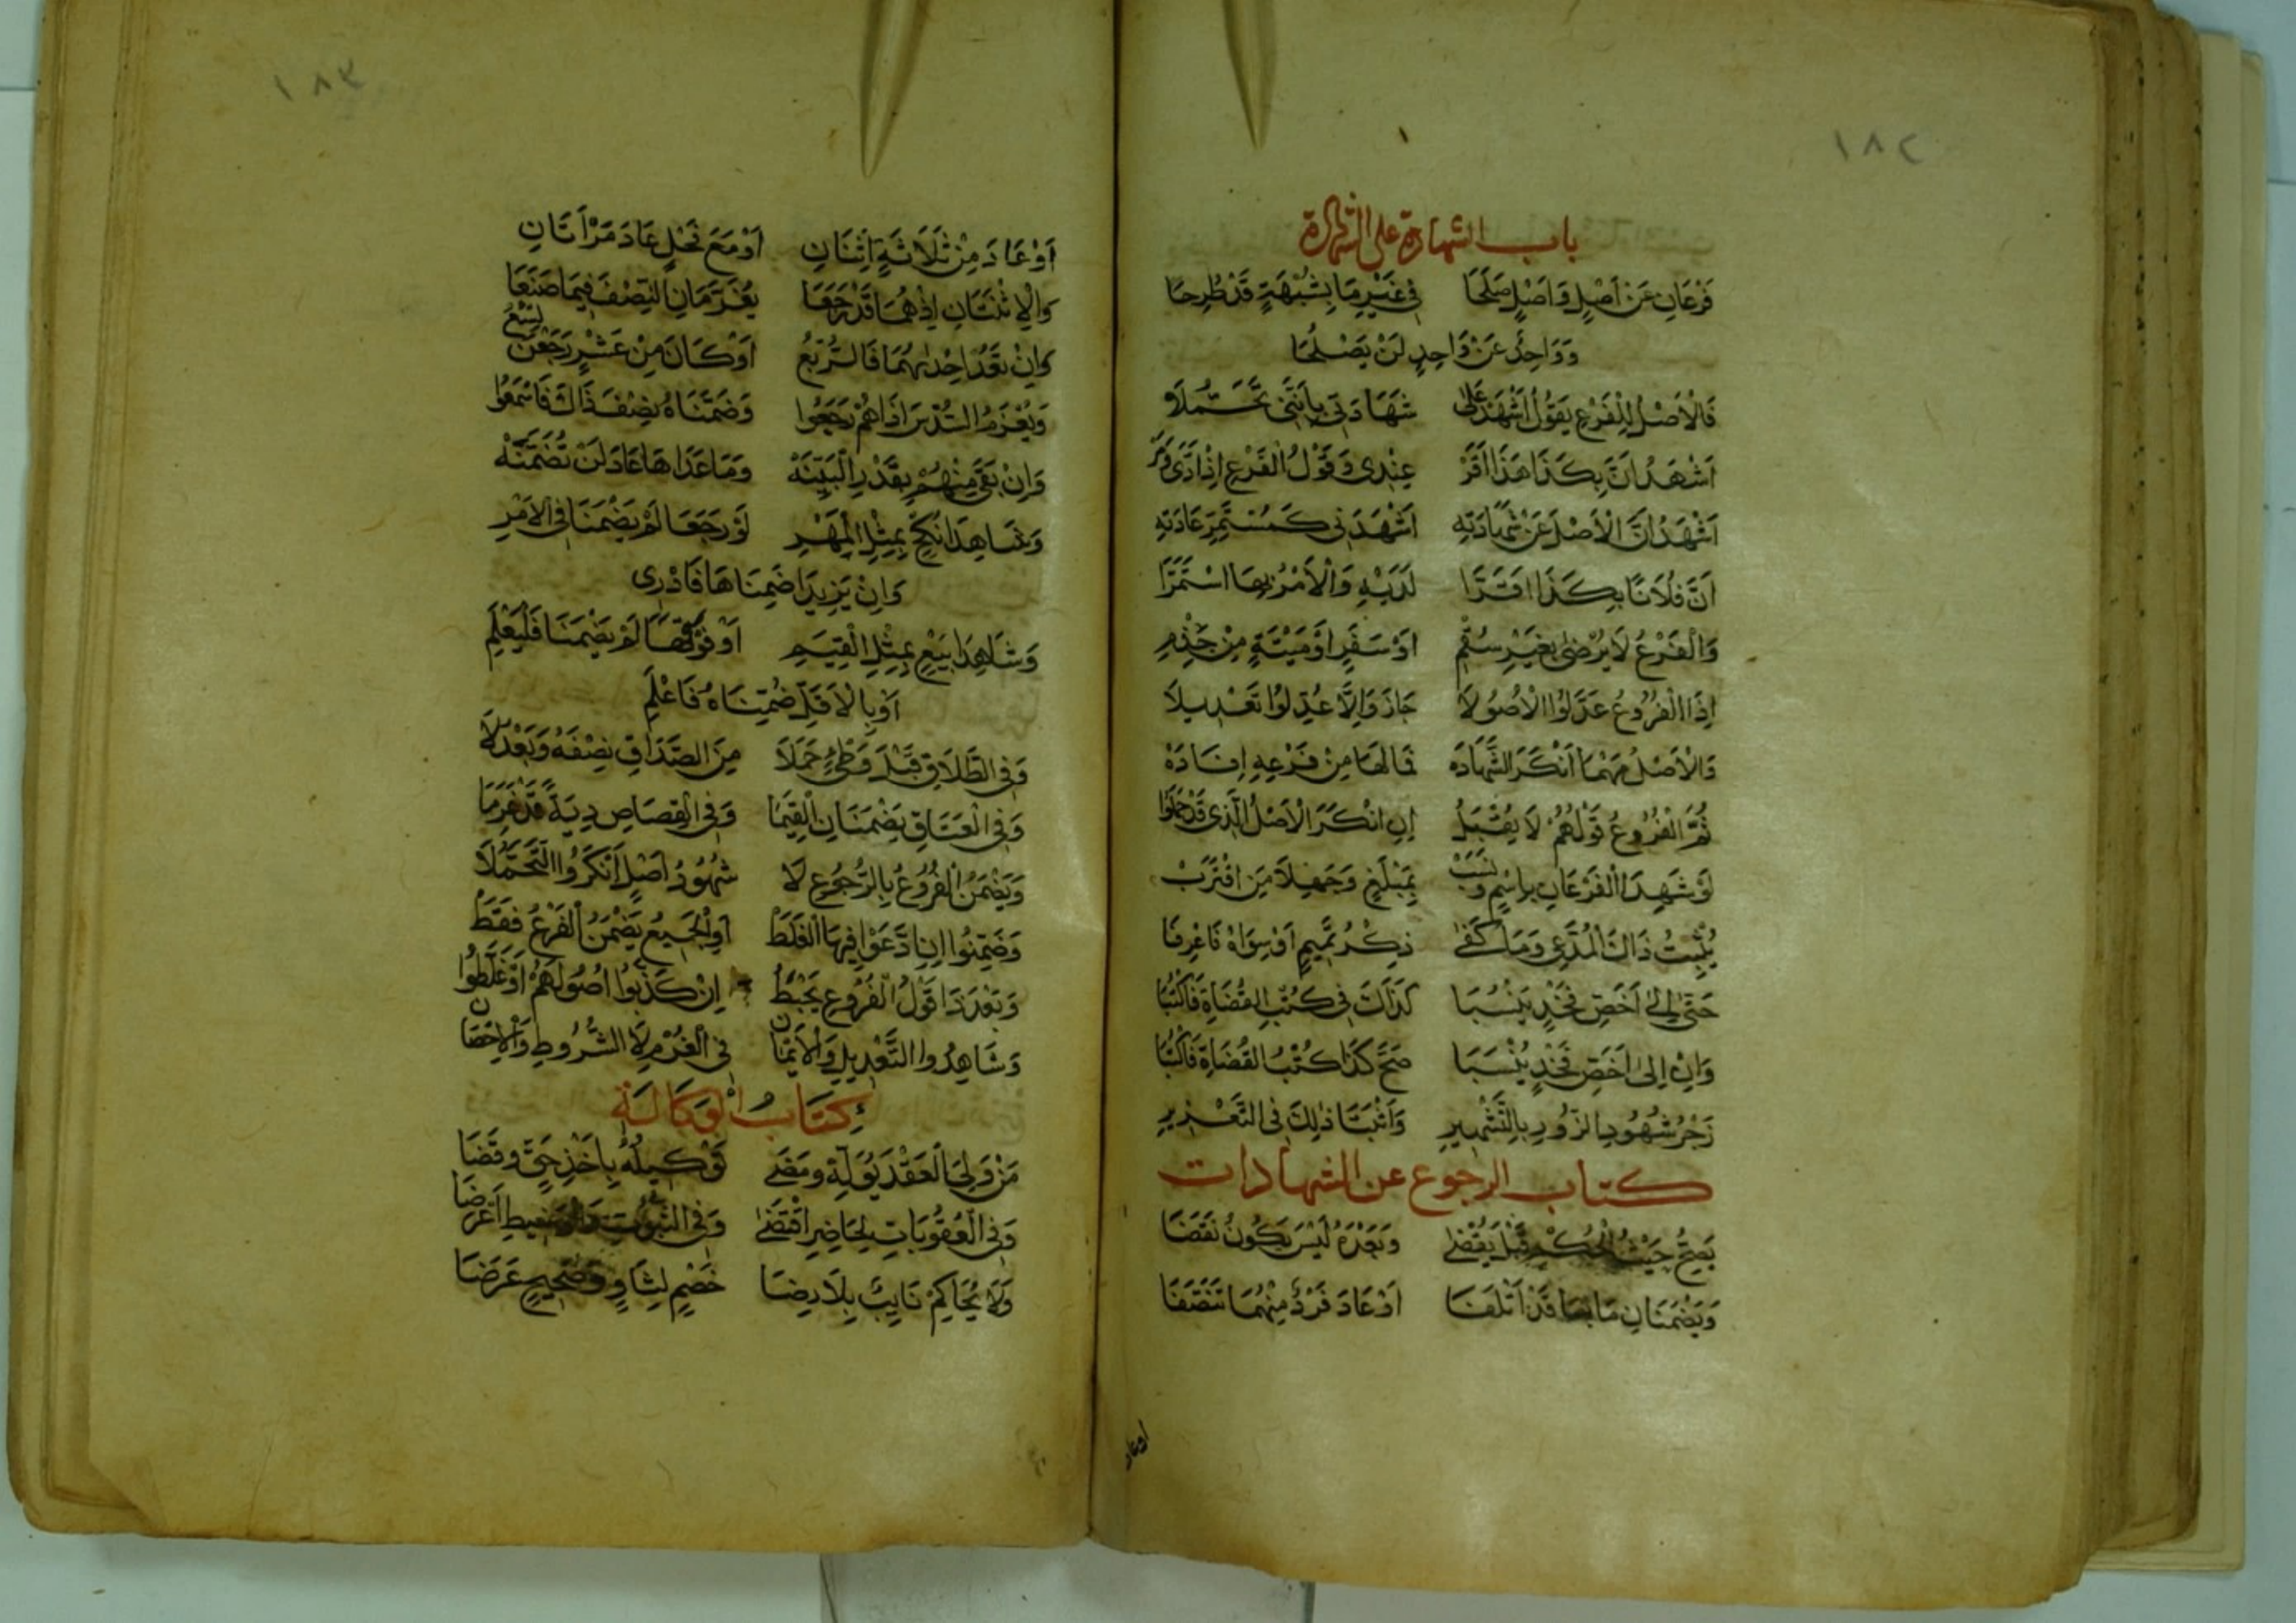 ١٨٢
باب الشهادة على الشهادة
فَرْعَانِ عَنْ اَصْلٍ وَاَصْلٍ صَلَحَا فِي غَيْرِ مَا بِشُبْهَةٍ قَدْ طُرِحَا
وَوَاحِدٌ عَنْ وَاحِدٍ لَنْ يَصْلُحَا
فَالْاَصْلُ لِلْفَرْعِ يَقُولُ اَشْهَدْ عَلٰى شَهَادَتِي بِاَنَّنِي
اَشْهَدُ اَنَّ بِكَذَا هَذَا اَقَرْ عِنْدِي وَقَوْلُ الْفَرْعِ اِذَا اَدَّى وَمَرْ
اَشْهَدُ اَنَّ الْاَصْلَ عَنْ شَهَادَتِهِ اَشْهَدَنِي كَمُسْتَمِرِّ عَادَتِهِ
اَنَّ فُلَانًا بِكَذَا اَقَرَّا لَدَيْهِ وَالْاَمْرُ بِهَا اسْتَمَرَّا
وَالْفَرْعُ لَا يُرْضٰى بِغَيْرِ سُقْمِ اَوْ سَفَرٍ اَوْ مَيْتَةٍ مِنْ
اِذَا الْفُرُوعُ عَدَّلُوا الْاُصُولَا جَازَ وَاِلَّا عُدِّلُوا تَعْدِيلَا
وَالْاَصْلُ مَهْمَا اَنْكَرَ الشَّهَادَهْ فَمَا لَهَا مِنْ فَرْعِهِ اِفَادَهْ
ثُمَّ الْفُرُوعُ قَوْلُهُمْ لَا يُقْبَلُ اِنِ انْكَرَ الْاَصْلُ الَّذِي قَدْ حَمَلُوا
لَوْ شَهِدَ الْفَرْعَانِ بِاسْمٍ وَنَسَبْ بِمَبْلَغٍ وَجَهِلَا مَنِ اقْتَرَبْ
يُثْبِتُ ذَاكَ الْمُدَّعِي وَمَا كَفٰى ذِكْرُ تَمِيمٍ اَوْ سِوَاهُ فَاعْرِفَا
حَتّٰى اِلٰى اَخَصِّ فَخْذٍ يَنْسُبَا كَذَاكَ فِي كُتْبِ الْقُضَاةِ فَاكْتُبَا
وَاِنْ اِلٰى اَخَصِّ فَخْذٍ يُنْسَبَا صَحَّ كَذَا كُتْبُ الْقُضَاةِ فَاكْتُبَا
زَجْرُ شُهُودِ الزُّورِ بِالتَّشْهِيرِ وَاَثْبَتَا ذٰلِكَ فِي التَّعْزِيرِ
كتاب الرجوع عن الشهادات
يَصِحُّ حَيْثُ الْحُكْمُ قَبْلُ يُقْضٰى وَبَعْدَهُ لَيْسَ يَكُونُ نَقْضَا
وَيَضْمَنَانِ مَا بِهَا قَدْ اَتْلَفَا اَوْ عَادَ فَرْدٌ مِنْهُمَا تَنَصَّفَا
اوعاد
١٨٣
اَوْ عَادَ مِنْ ثَلَاثَةٍ اِثْنَانِ اَوْ مَعَ فَحْلٍ عَادَ مَرْاَتَانِ
وَالِاثْنَتَانِ اِذْ هُمَا قَدْ رَجَعَا يُغَرَّمَانِ النِّصْفَ فِيمَا صَنَعَا
وَاِنْ تَعُدْ اِحْدٰيهُمَا فَالرُّبْعُ اَوْ كَانَ مِنْ عَشْرٍ رَجَعْنَ تِسْعُ
وَيُغْرَمُ السُّدْسَ اِذَا هُمْ رَجَعُوا وَضَمَّنَاهُ نِصْفَ ذَاكَ فَاسْمَعُوا
وَاِنْ بَقِيْ مِنْهُمْ بِقَدْرِ الْبَيِّنَهْ وَمَا عَدَاهَا عَادَ لَنْ تُضَمِّنَهْ
وَشَاهِدَا نُكْحٍ بِمِثْلِ الْمَهْرِ لَوْ رَجَعَا لَمْ يَضْمَنَا فِي الْاَمْرِ
وَاِنْ يَزِيدَا ضَمِنَاهَا فَادْرِي
وَشَاهِدَا بَيْعٍ بِمِثْلِ الْقِيَمِ اَوْ فَوْقَهَا لَمْ يَضْمَنَا فَلْيُعْلَمِ
اَوْ بِالْاَقَلِّ ضَمِنَاهُ فَاعْلَمِ
وَفِي الطَّلَاقِ قَبْلَ وَطْئٍ حَمَلَا مِنَ الصَّدَاقِ نِصْفَهُ وَبَعْدُ لَا
وَفِي الْعَتَاقِ يَضْمَنَانِ الْقِيَمَا وَفِي الْقِصَاصِ دِيَةً قَدْ غَرِمَا
وَيَضْمَنُ الْفُرُوعُ بِالرُّجُوعِ لَا شُهُودُ اَصْلٍ اَنْكَرُوا التَّحَمُّلَا
وَضَمِنُوا اِنِ ادَّعَوْا فِيهَا الْغَلَطْ اَوِ الْجَمِيعُ يَضْمَنُ الْفَرْعُ فَقَطْ
وَبَعْدَ ذَا قَوْلُ الْفُرُوعِ يَحْبَطُ اِنْ كَذَّبُوا اُصُولَهُمْ اَوْ غَلَّطُوا
وَشَاهِدُوا التَّعْدِيلِ وَالْاَيْمَانِ فِي الْغُرْمِ لَا الشُّرُوطِ وَالْاِحْصَانِ
كِتَابُ الْوَكَالَةِ
مَنْ وَلِيَ الْعَقْدَ يُوَلِّهِ وَمَضٰى تَوْكِيلُهُ بِاَخْذِ حَقٍّ وَقَضَا
وَفِي الْعُقُوبَاتِ لِحَاضِرٍ اقْتَضٰى وَفِي
وَلَا يُحَاكِمْ نَايِبٌ بِلَا رِضَا خَصْمٍ لِثَاوٍ وَصَحِيحٍ عَرَضَا